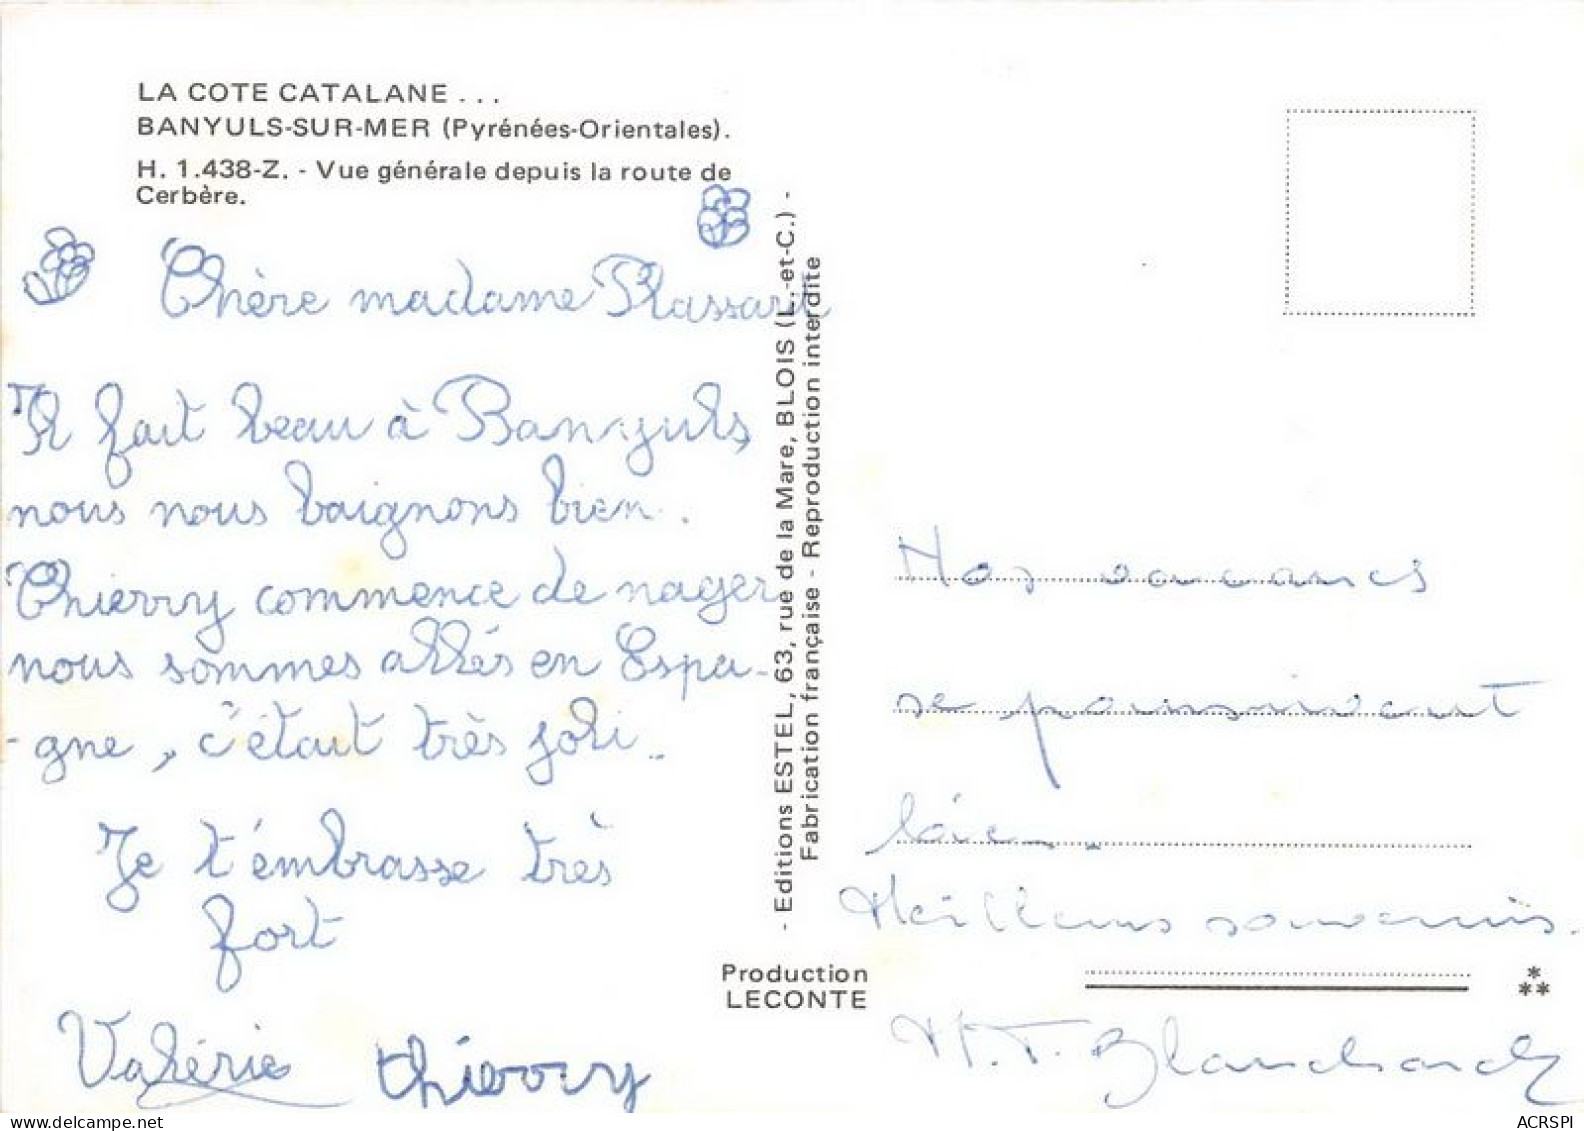 LA COTE CATALANE ...
BANYULS-SUR-MER (Pyrénées-Orientales).
H. 1.438-Z. - Vue générale depuis la route de
Cerbère.
Chère madame Plassard
Il fait beau à Banyuls,
nous nous baignons bien.
Thierry commence de nager
nous sommes allés en Espa-
-gne, c'était très joli.
Je t'émbrasse très
fort
Valérie thierry
- Editions ESTEL, 63, rue de la Mare, BLOIS (L.-et-C.) -
Fabrication française - Reproduction interdite
Production
LECONTE
Nos vacances
se poursuivent
bien.
Meilleurs souvenirs.
M.T. Blanchard
*
**
ACRSPI